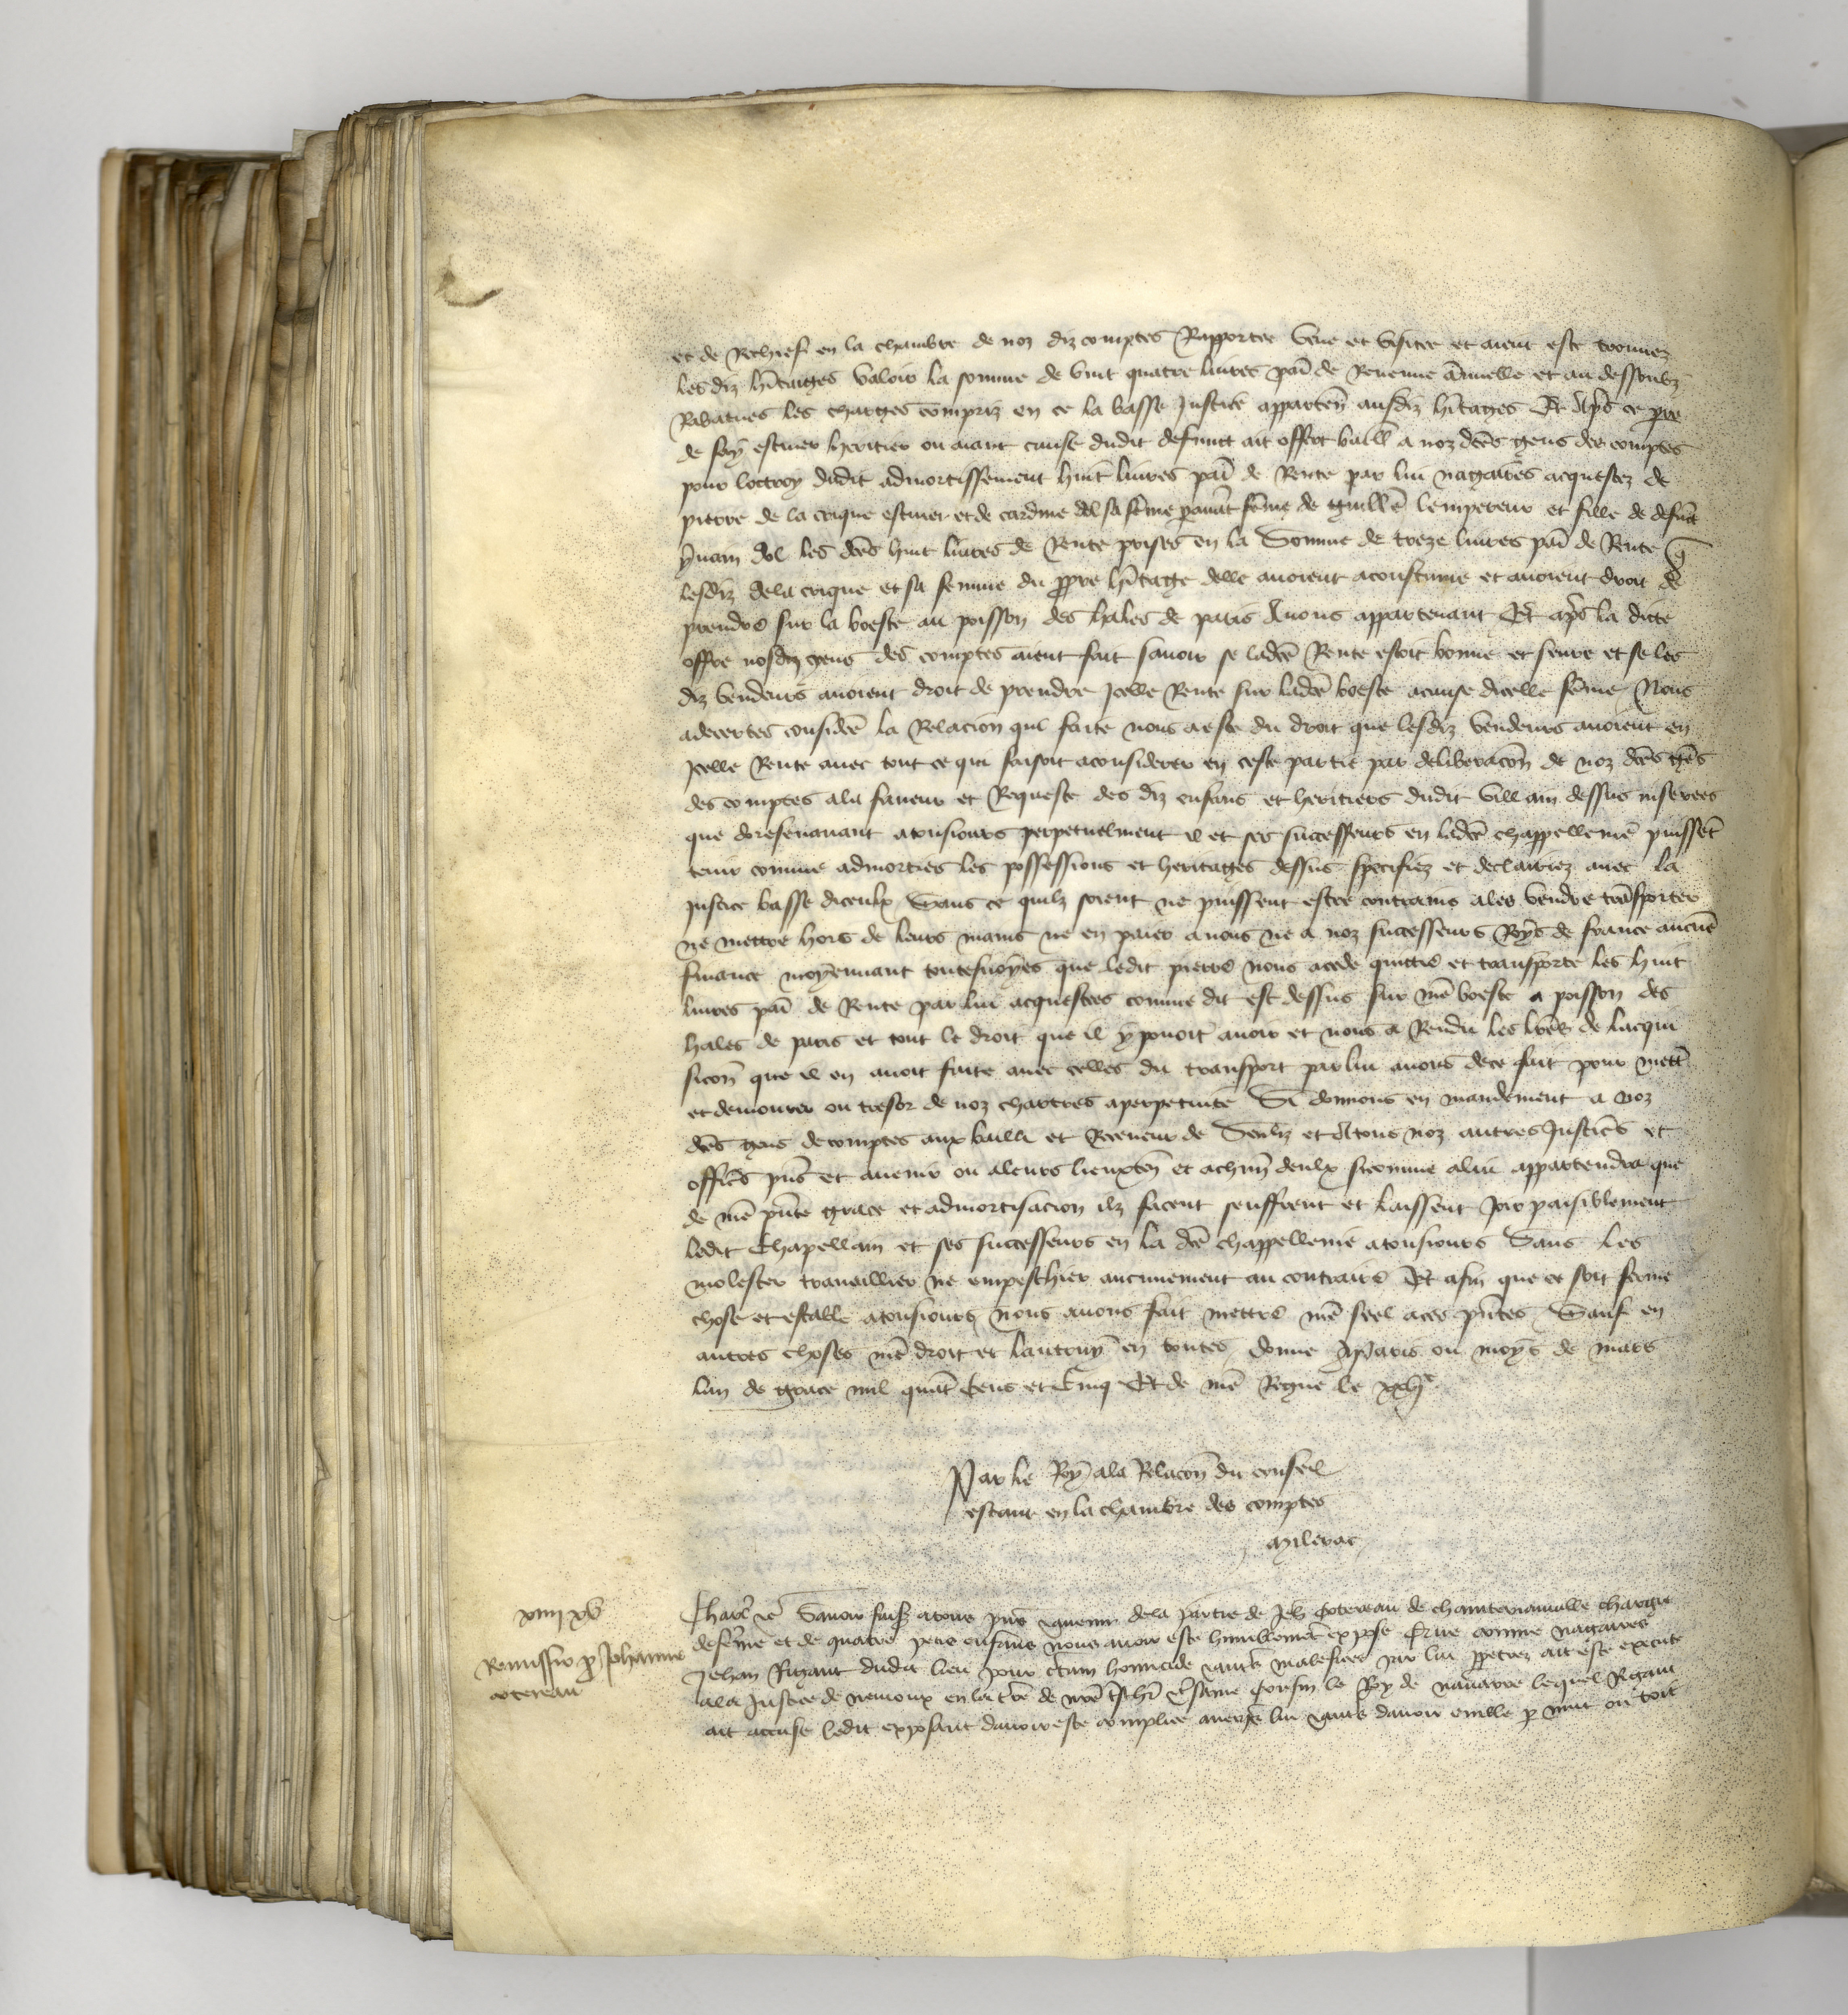 et de Rechief en la chambre de noz diz comptes Rapportee veue et visitee et aient este trouvez
les diz hītaiges valoir la somme de vint quatre livres pār de Revenue āmuelle et au dessoubz
Rabatues les charges compriz en ce la basse Justice apparteñ ausdiz hītages Et apres ce
de heritier ou aiant cause dudit defunct ait offert baill a noz dces gens des comptes
pour loctroy dudit admortissement huit livres pār de Rente par lui nagaires acquestez de
pierre de la crique et de sa fēme paravāt fēme de guillē lempereur et fille de defūct
les dces huit livres de Rente prises en la Somme de treze livres pār de Rente q̄
lesdiz dela crique et sa femme du ppre hītage delle avoient acoustume et avoient droit de
prendre sur la boeste au poisson des hales de paris Anous appartenant Et apres la dicte
offre nosdiz gens des comptes aient fait savoir se ladce Rente estoit bonne et seure et se les
diz vendeurs avoient droit de prendre Icelle Rente sur ladce boeste acause dicelle fēme Nous
adecertes considere la Relacion qui faite nous a este du droit que lesdiz vendeurs avoient en
Icelle Rente avec tout ce qui faisoit aconsiderer en ceste partie par deliberacōn de noz dces gēs
des comptes ala faveur et Requeste des diz enfans et heritiers dudit villain dessus inserees
que doresenavant atousiours perpetuelment il et ses successeurs en ladce chappellenie puissēt
tenir comme admorties les possessions et heritages dessus specifiez et declairiez avec la
Justice basse diceulx Sans ce quilz soient ne puissent estre contrains ales vendre trāsporter
ne mettre hors de leurs mains ne en paier anous ne a noz successeurs Roys de france aucūe
finance moyennant toutesvoyes que ledit pierre nous acede quittie et transporte les huit
livres pār de Rente par lui acquestees comme dit est dessus sur nr̄e boeste a poisson des
hales de paris et tout le droit que il y povoit avoir et nous a Rendu les lrēs de lacqui
sicōn que il en avoit faite avec celles du transport par lui anous dece fait pour mettr
et demourer ou tresor de noz chartres aperpetuite Si donnons en mandement a Noz
dces gens de comptes aux bailli et Receveur de Senliz et Atous noz autres Justicēs et
officēs pñs et avenir ou aleurs lieuxteñ et achūn deulx sicomme alui appartendra que
de nr̄e pñte grace et admortisacion ilz facent seuffrent et laissent Joir paisiblement
ledit Chapellain et ses successeurs en la dce chappellenie atousiours Sans les
molester travaillier ne empeschier aucunement au contraire Et afin que ce soit ferme
chose et estable atousiours Nous avons fait mettre nr̄e seel aces pñtes Sauf en
autres choses nr̄e droit et lautruy en toutes donne AParis ou moys de mars
lan de grace mil quāt Cens et Cinq Et de nr̄e Regne le xxvj e
Par le Roy ala Relacōn du conseil
estant en la chambre des comptes
Milerac
xiiij xv
Remissio p Johanne
cotereau
Charl̄ ec̄ Savoir faisz atous pñs avenir dela partie de Jeh Cotereau de chargie
de fēme et de quatre petis enfans nous avoir este humblemēt expose Que comme nagaires
Jehan Rigaut dudit lieu pour ctain homicide malefices par lui ppetrez ait este execute
ala Justice de nemoux en la tre de nr̄e tschr̄ Cousin le Roy de navarre lequel Rigaut
ait accuse ledit exposant davoir este complice avecqs lui davoir emble p nuit